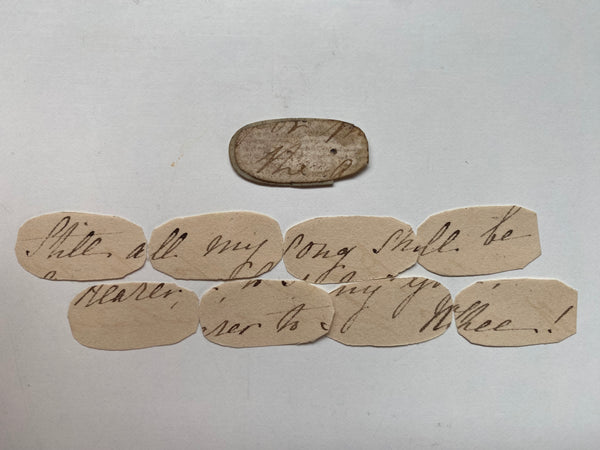 or
the
Still all my song shall be
earer, my
rer to Thee!